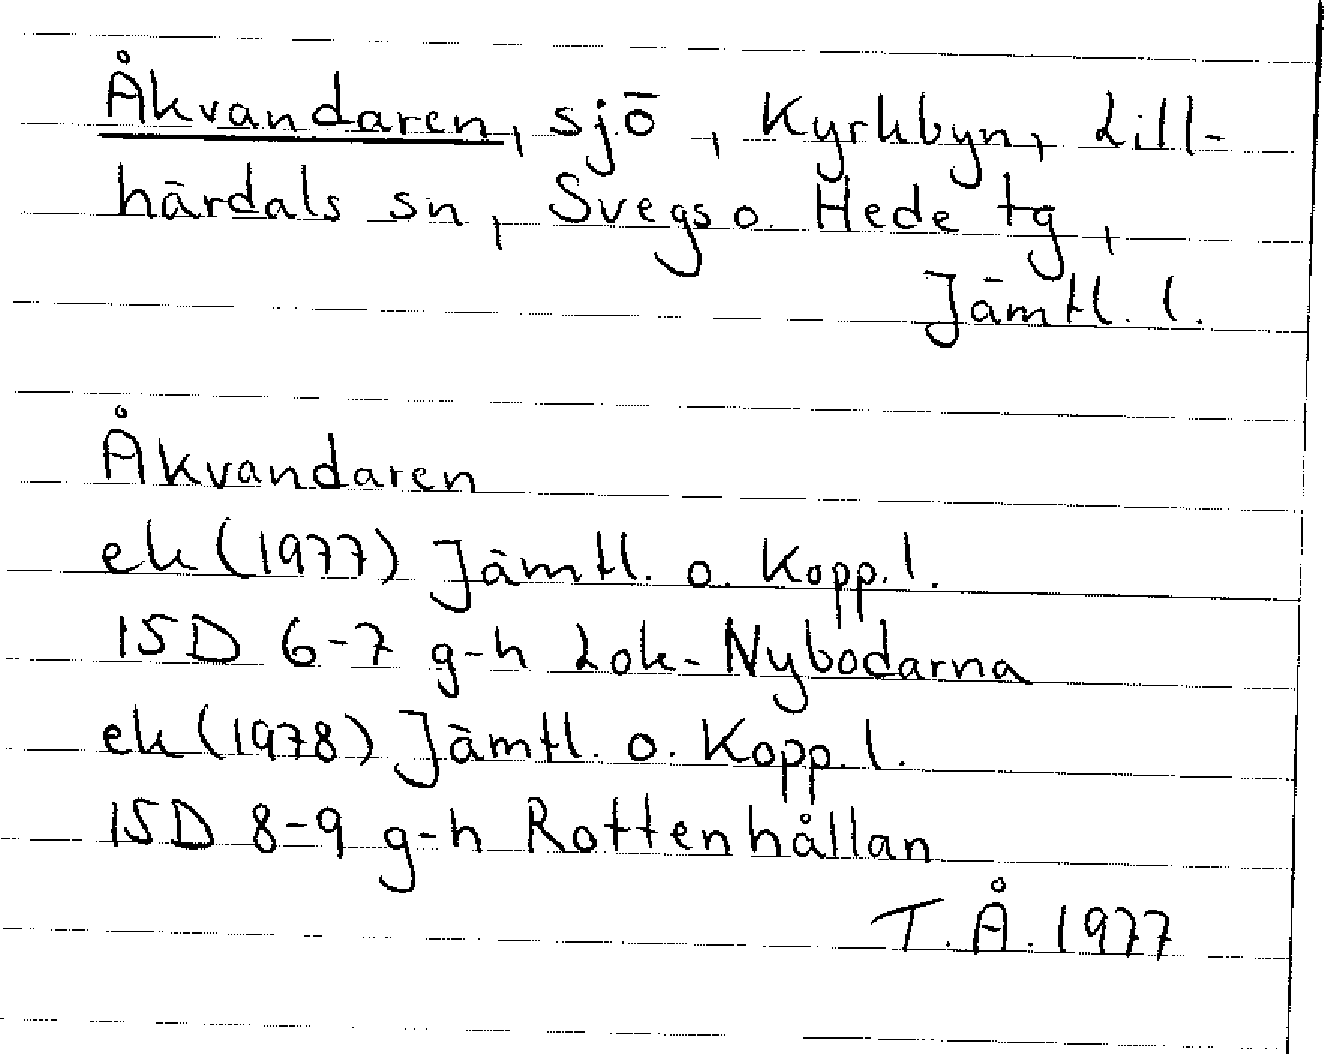 Åkvandaren, sjö, Kyrkbyn, Lill-
härdals sn, Svegs o. Hede tg,
Jämtl. l.
Åkvandaren
ek (1977) Jämtl. o. Kopp. l.
15D 6-7 g-h Lok-Nybodarna
ek (1978) Jämtl. o. Kopp. l.
15D 8-9 g-h Rottenhållan
T. Å. 1977